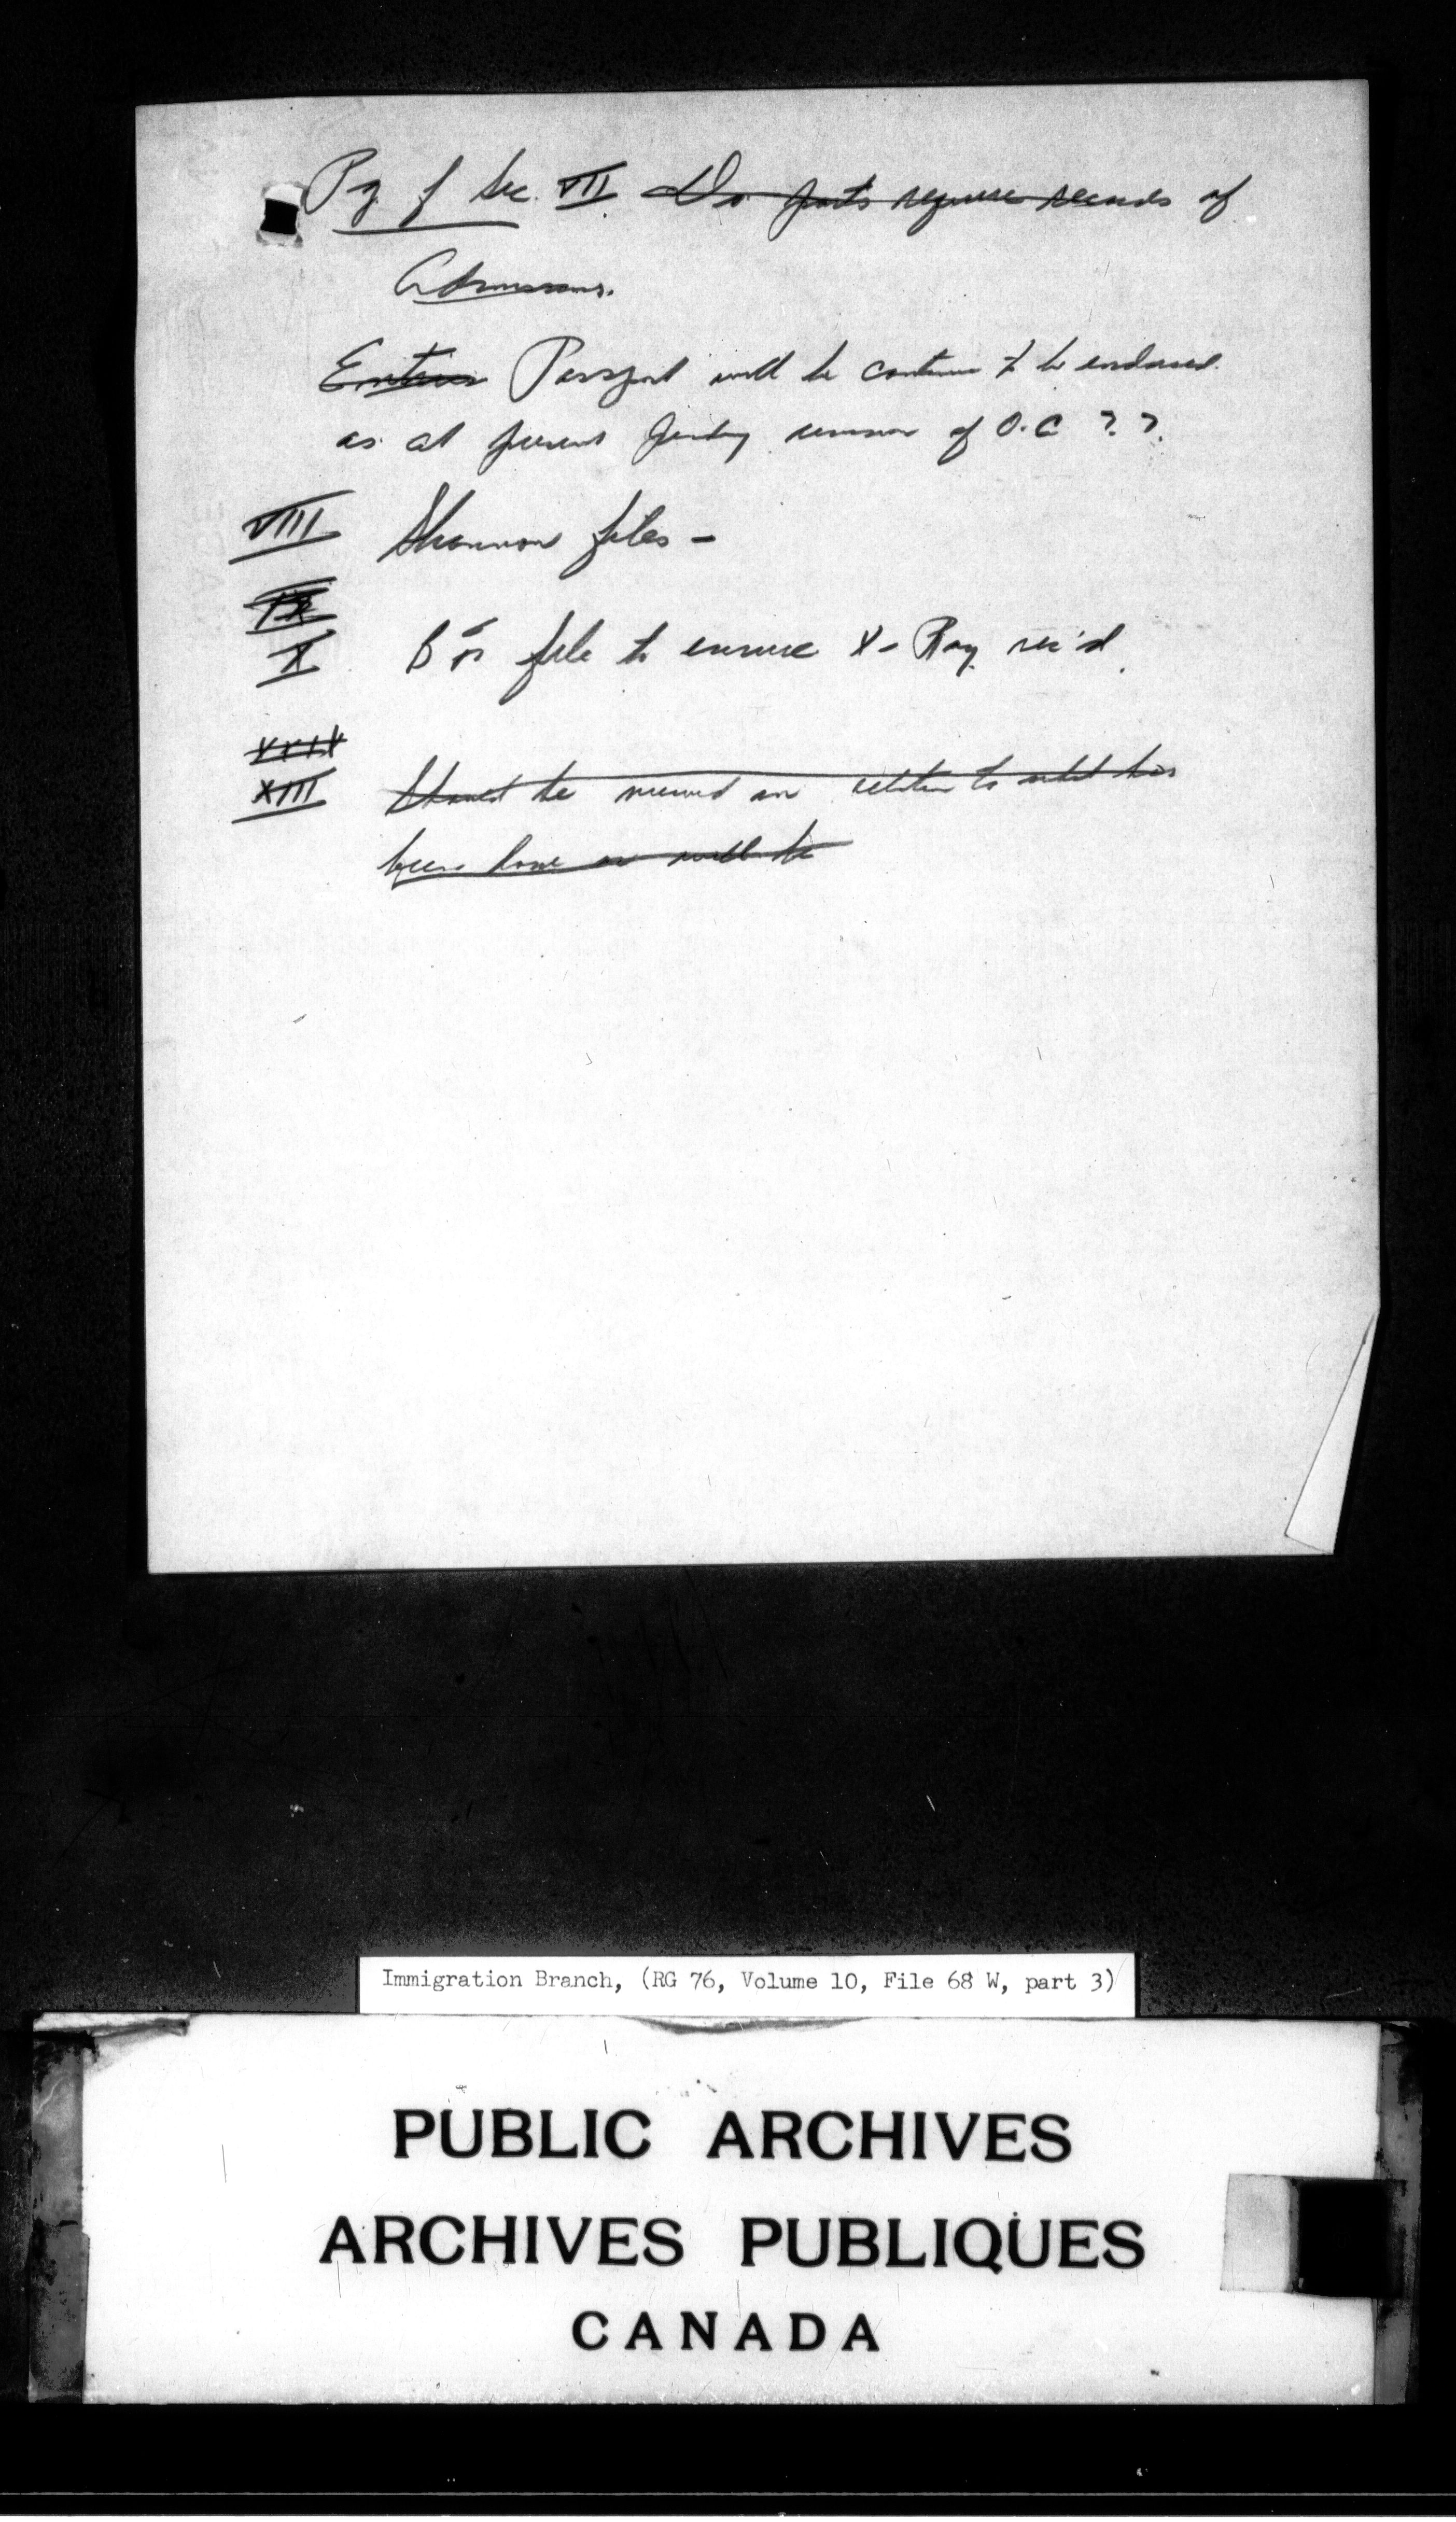 Pg f Sec. VII Do ports require records of
Admissions.
Entries Passport will be continue to be endorsed
as at present pending revision of O.C ? ?.
VIII Shannon files -
IX
X B F file to ensure X-Ray rec'd
XXIX
XIII Should be viewed in relation to what has
been done or will be
Immigration Branch, (RG 76, Volume 10, File 68 W, part 3)
PUBLIC ARCHIVES
ARCHIVES PUBLIQUES
CANADA